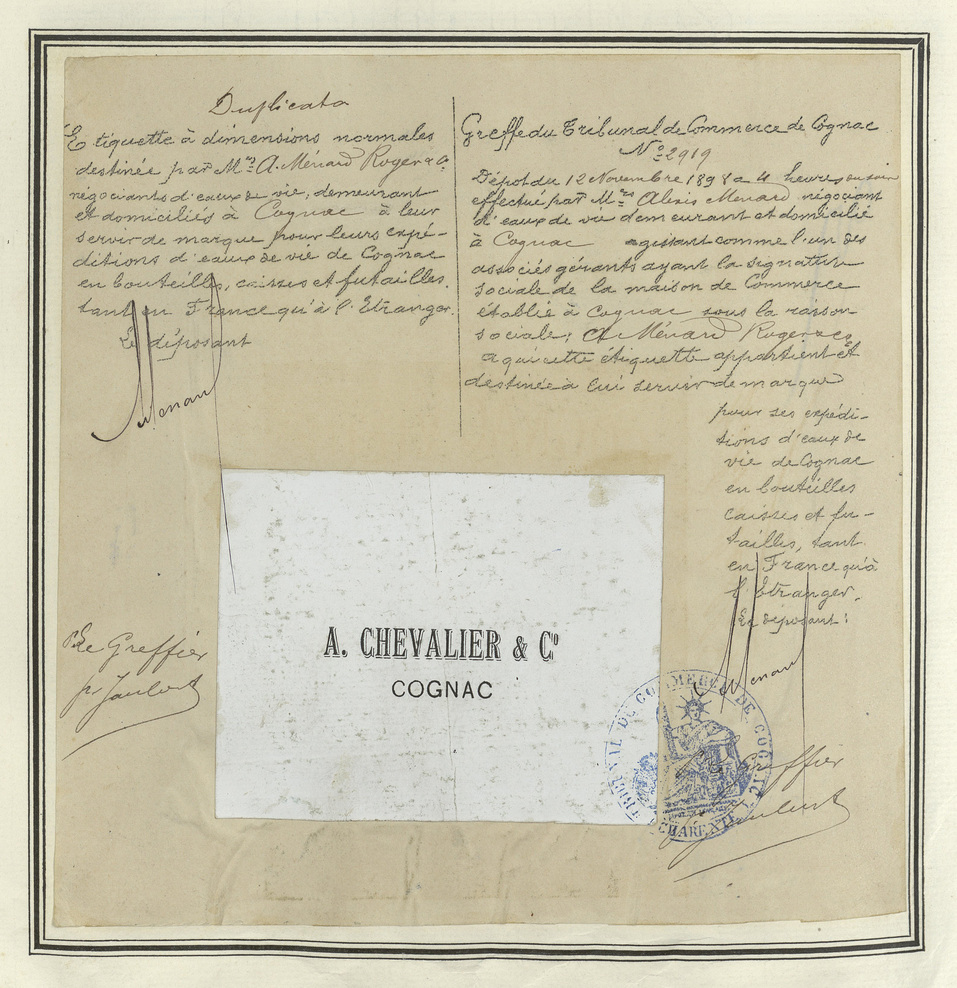 Duplicata
Etiquette à dimensions normales
destinée par Mrs A. Ménard Roger & Co
négociants d'eaux de vie, demeurant
et domiciliés à Cognac à leur
servir de marque pour leurs expé-
ditions d'eaux de vie de Cognac
en bouteilles, caisses et futailles.
tant en France qu'à l'Etranger.
Le déposant
AMenard
Greffe du Tribunal de Commerce de Cognac
No 2919
Dépôt du 12 Novembre 1898 à 4 heures du soir
effectué par Mr Alexis Ménard négociant
d'eaux de vie demeurant et domicilié
à Cognac agissant comme l'un des
associés gérants ayant la signature
sociale de la maison de Commerce
établie à Cognac sous la raison
sociale: A Ménard Roger & Co
a qui cette étiquette appartient et
destinée à lui servir de marque
pour ses expédi-
tions d'eaux de
vie de Cognac
en bouteilles
caisses et fu-
tailles, tant
en France qu'à
l'Etranger.
Le déposant:
AMenard
A. CHEVALIER & Co
COGNAC
Le Greffier
TRIBUNAL DE COMMERCE DE COGNAC
CHARENTE
Le Greffier